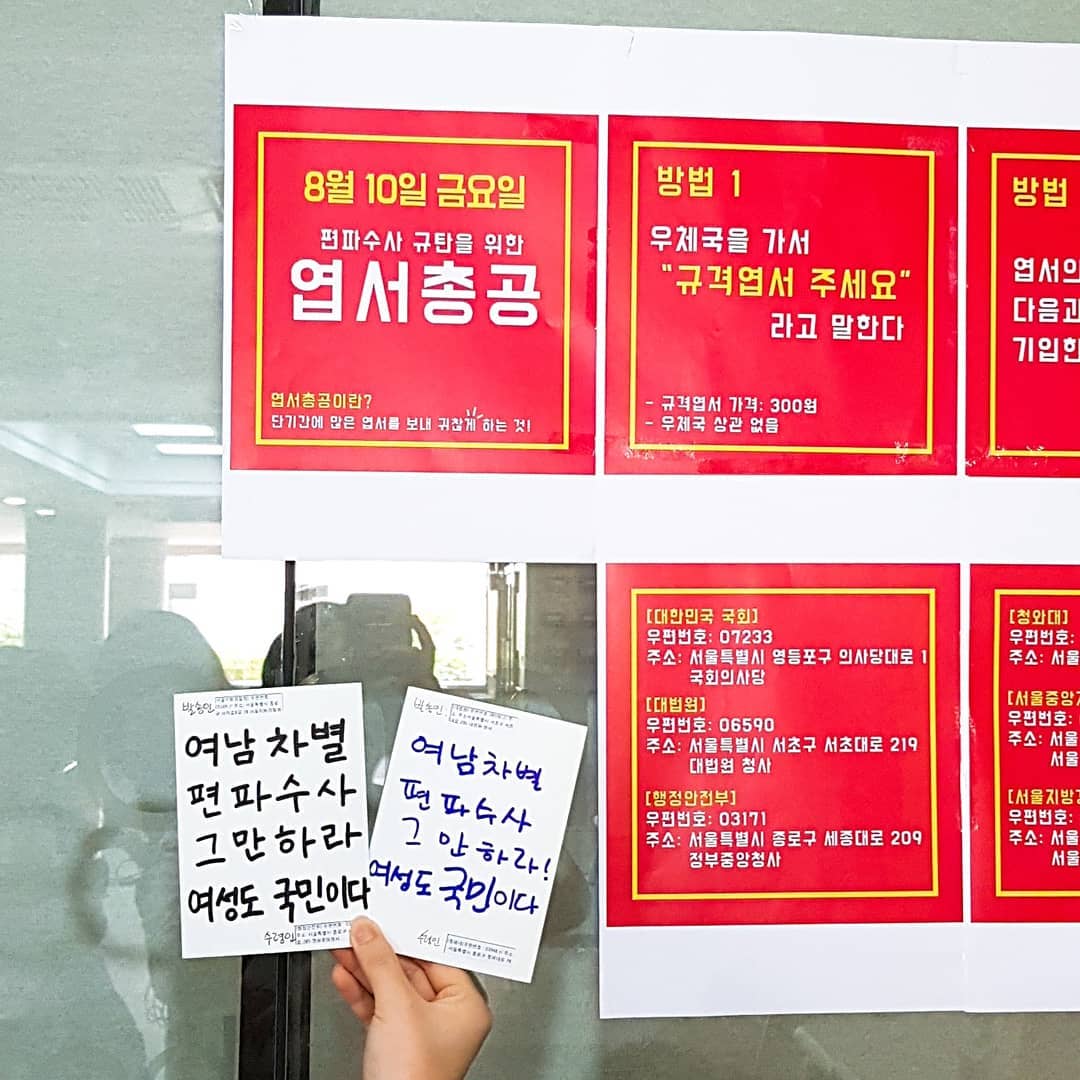 8월 10일 금요일
편파수사 규탄을 위한
엽서총공
엽서총공이란?
단기간에 많은 엽서를 보내 귀찮게 하는 것!
방법 1
우체국을 가서
"규격엽서 주세요"
라고 말한다
- 규격엽서 가격: 300원
- 우체국 상관 없음
방법
엽서의
다음과
기입한
[대한민국 국회]
우편번호: 07233
주소: 서울특별시 영등포구 의사당대로 1
국회의사당
[대법원]
우편번호: 06590
주소: 서울특별시 서초구 서초대로 219
대법원 청사
[행정안전부]
우편번호: 03171
주소: 서울특별시 종로구 세종대로 209
정부중앙청사
[청와대]
우편번호:
주소: 서울
[서울중앙
우편번호:
주소: 서울
서울
[서울지방
우편번호:
주소: 서울
서울
발송인
여남차별
편파수사
그만하라
여성도 국민이다
수령인
발송인
여남차별
편파수사
그만하라!
여성도 국민이다
수령인